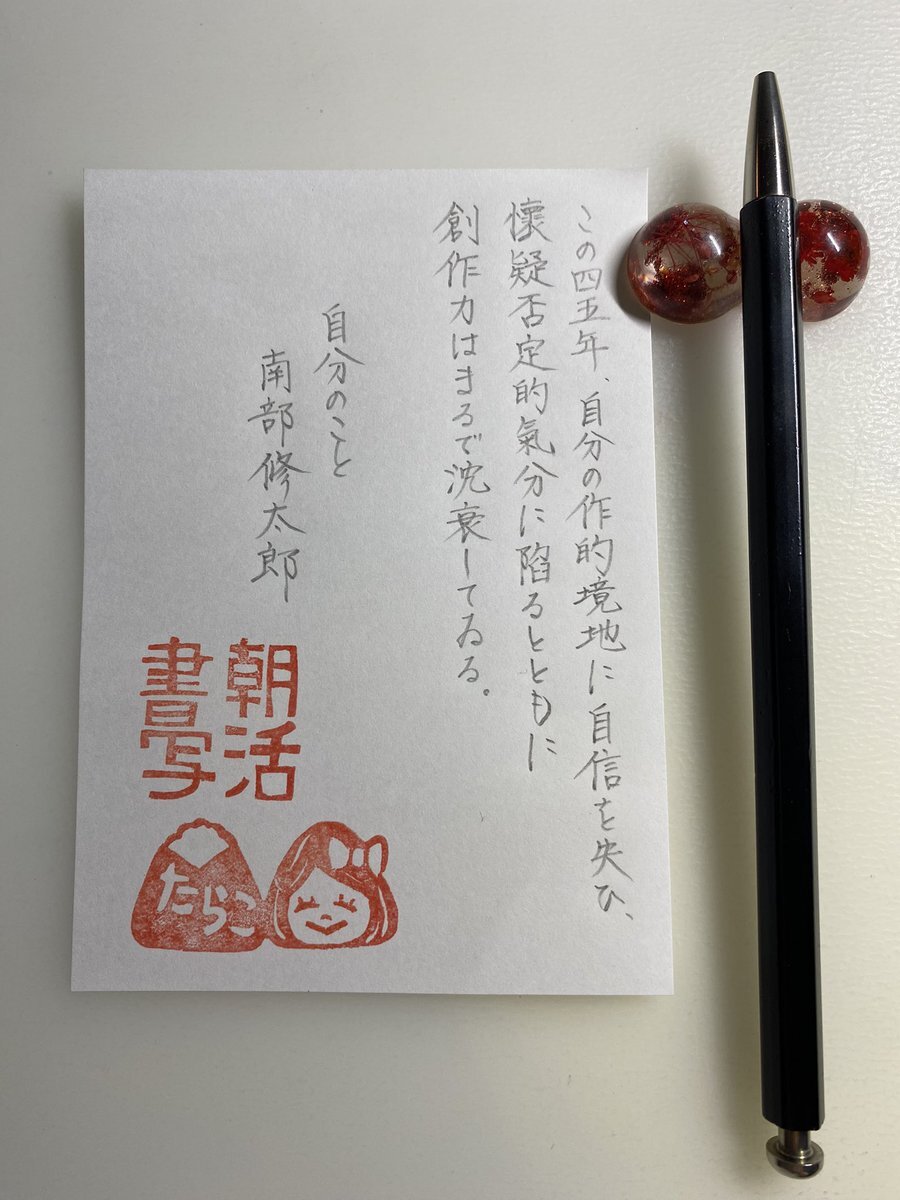 この四五年、自分の作的境地に自信を失ひ、
懐疑否定的氣分に陷るとともに
創作力はまるで沈衰してゐる。
自分のこと
南部修太郎
朝活
書写
たらこ